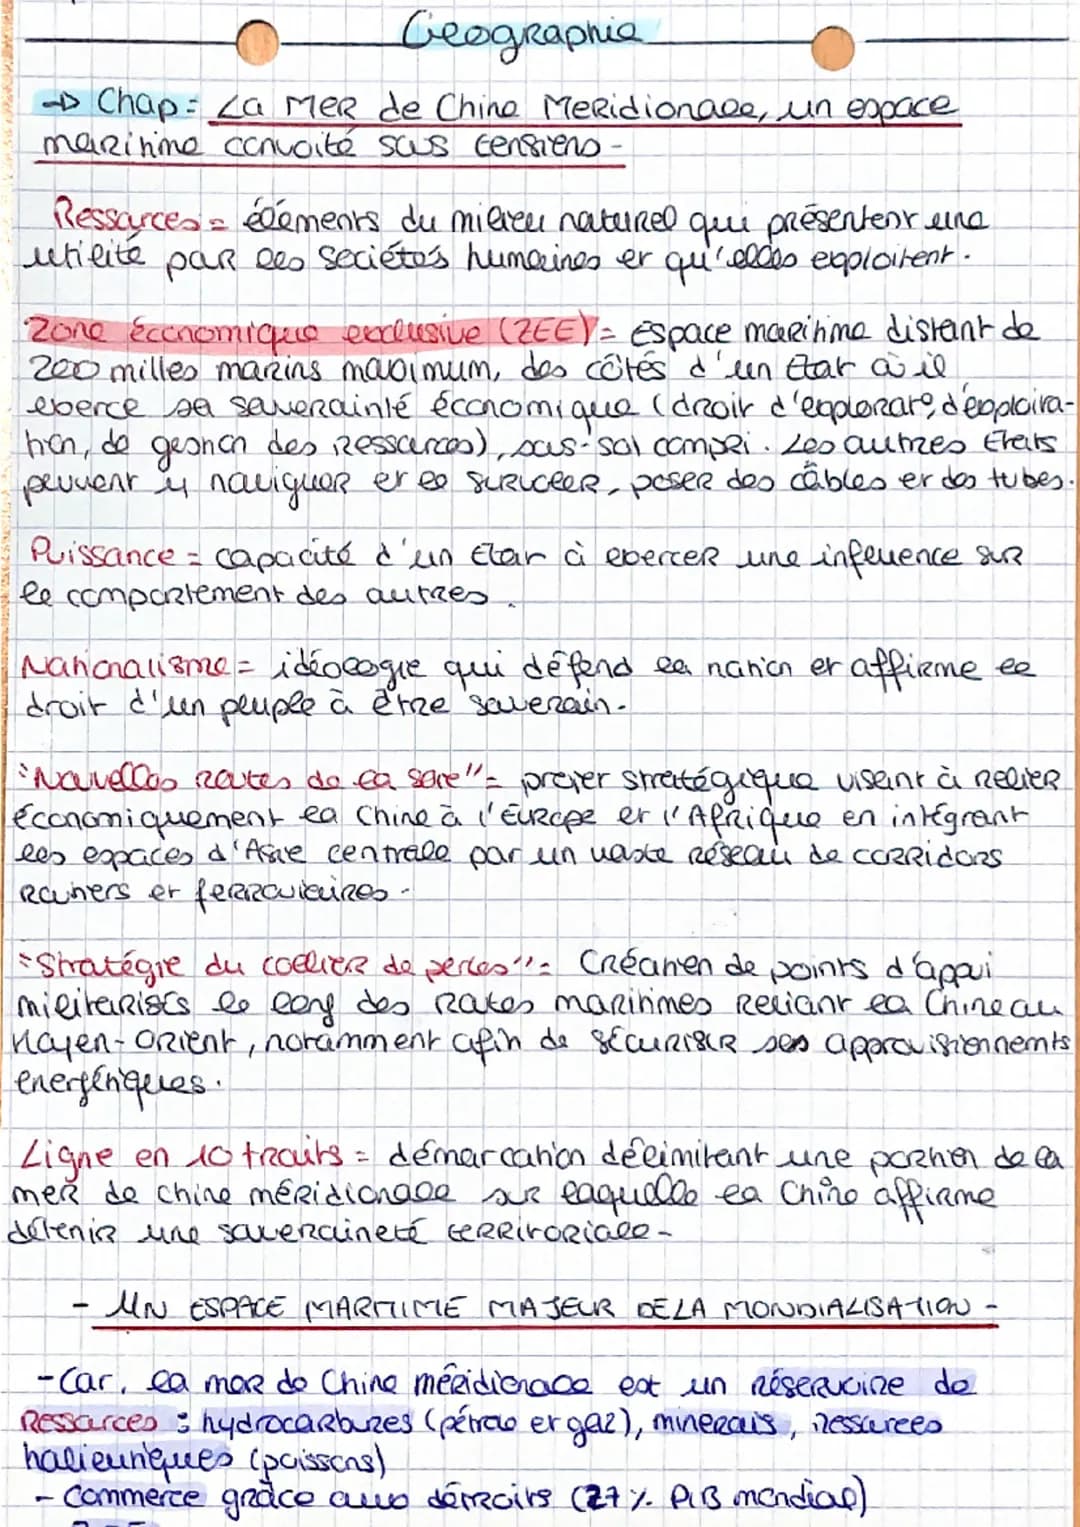 Géographie
→ Chap : La Mer de Chine Méridionale, un espace
maritime convoité sous tensions -
Ressources = éléments du milieu naturel qui présentent une
utilité par les sociétés humaines et qu'elles exploitent.
Zone économique exclusive (ZEE) = Espace maritime distant de
200 milles marins maximum, des côtés d'un Etat où il
exerce sa souverainté économique (droit d'explorare, d'exploita-
tion, de gestion des ressources), sous-sol compri. Les autres Etats
peuvent y naviguer et le survoler, poser des câbles et des tubes.
Puissance = capacité d'un Etat à exercer une influence sur
le comportement des autres.
Nationalisme = idéologie qui défend la nation et affirme le
droit d'un peuple à être souverain.
"Nouvelles routes de la soie" = projet stratégique visant à relier
économiquement la Chine à l'Europe et l'Afrique en intégrant
les espaces d'Asie centrale par un vaste réseau de corridors
routiers et ferroviaires -
"Stratégie du collier de perles" = Création de points d'appui
militarisés le long des routes maritimes reliant la Chine au
Moyen-Orient, notamment afin de sécuriser ses approvisionnements
énergétiques.
Ligne en 10 traits = démarcation délimitant une portion de la
mer de chine méridionale sur laquelle la Chine affirme
détenir une souveraineté territoriale -
- UN ESPACE MARITIME MAJEUR DE LA MONDIALISATION -
- Car, la mer de Chine méridionale est un réservoire de
Ressources : hydrocarbures (pétrole et gaz), minerais, ressources
halieutiques (poissons)
- Commerce grâce aux détroits (27 % PIB mondial)